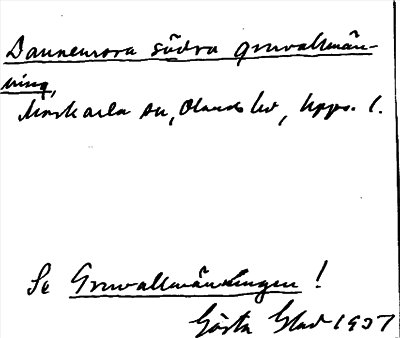 Dannemora södra gruvallmän-
ning,
Morkarla sn, Olands hd, Upps. l.
Se Gruvallmänningen!
Gösta Blad 1937